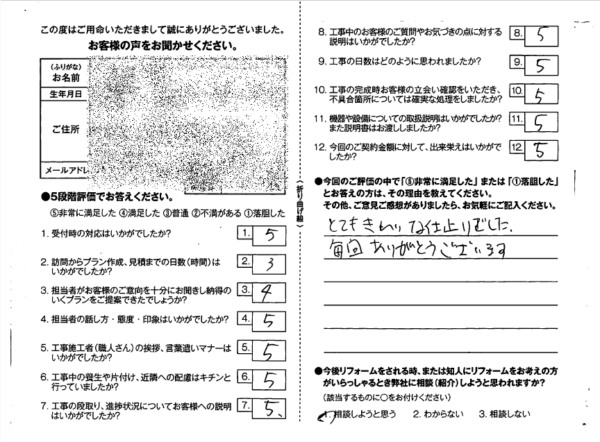 この度はご用命いただきまして誠にありがとうございました。
お客様の声をお聞かせください。
(ふりがな)
お名前
生年月日
ご住所
メールアドレ
●5段階評価でお答えください。
⑤非常に満足した ④満足した ③普通 ②不満がある ①落胆した
1. 受付時の対応はいかがでしたか? 1. 5
2. 訪問からプラン作成、見積までの日数(時間)は
いかがでしたか? 2. 3
3. 担当者がお客様のご意向を十分にお聞きし納得の
いくプランをご提案できたでしょうか? 3. 4
4. 担当者の話し方・態度・印象はいかがでしたか? 4. 5
5. 工事施工者(職人さん)の挨拶、言葉遣いマナーは
いかがでしたか? 5. 5
6. 工事中の養生や片付け、近隣への配慮はキチンと
行っていましたか? 6. 5
7. 工事の段取り、進捗状況についてお客様への説明
はいかがでしたか? 7. 5
(折り曲げ線)
8. 工事中のお客様のご質問やお気づきの点に対する
説明はいかがでしたか? 8. 5
9. 工事の日数はどのように思われましたか? 9. 5
10. 工事の完成時お客様の立会い確認をいただき、
不具合箇所については確実な処理をしましたか? 10. 5
11. 機器や設備についての取扱説明はいかがでしたか?
また説明書はお渡ししましたか? 11. 5
12. 今回のご契約金額に対して、出来栄えはいかがで
したか? 12. 5
●今回のご評価の中で「⑤非常に満足した」または「①落胆した」
とお答えの方は、その理由を教えてください。
その他、ご意見ご感想がありましたら、お気軽にご記入ください。
とてもきれいな仕上りでした。
毎回ありがとうございます
●今後リフォームをされる時、または知人にリフォームをお考えの方
がいらっしゃるとき弊社に相談(紹介)しようと思われますか?
(該当するものに○をお付けください)
1. 相談しようと思う 2. わからない 3. 相談しない